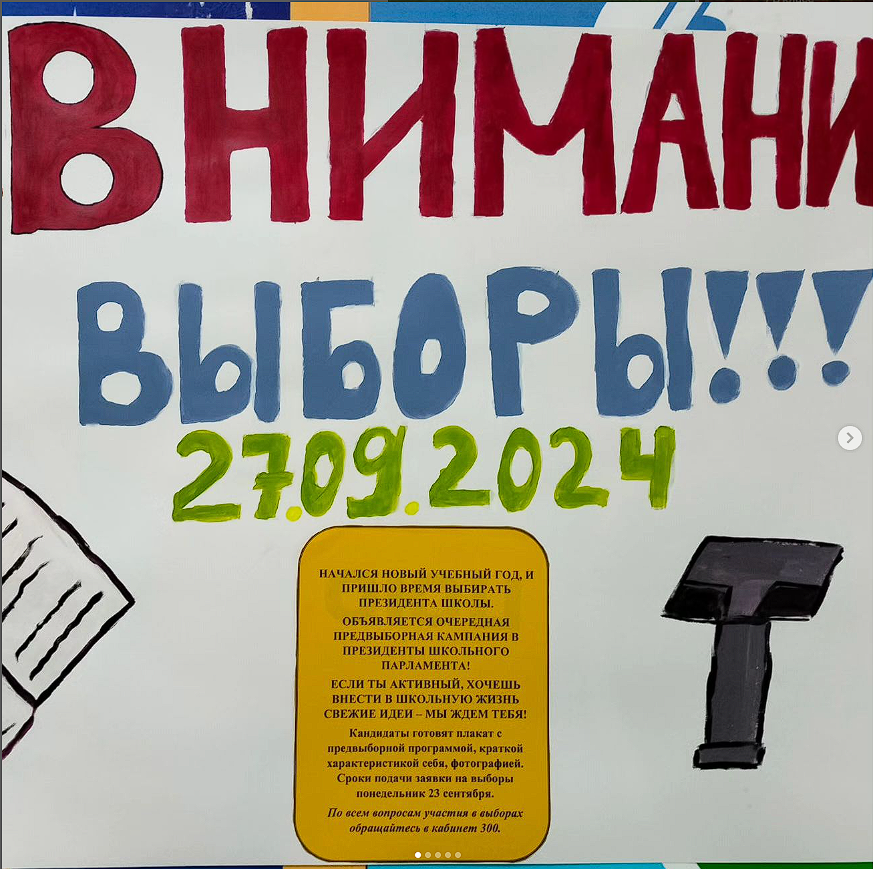 ВНИМАНИ
ВЫБОРЫ!!!
27.09.2024
НАЧАЛСЯ НОВЫЙ УЧЕБНЫЙ ГОД, И
ПРИШЛО ВРЕМЯ ВЫБИРАТЬ
ПРЕЗИДЕНТА ШКОЛЫ.
ОБЪЯВЛЯЕТСЯ ОЧЕРЕДНАЯ
ПРЕДВЫБОРНАЯ КАМПАНИЯ В
ПРЕЗИДЕНТЫ ШКОЛЬНОГО
ПАРЛАМЕНТА!
ЕСЛИ ТЫ АКТИВНЫЙ, ХОЧЕШЬ
ВНЕСТИ В ШКОЛЬНУЮ ЖИЗНЬ
СВЕЖИЕ ИДЕИ – МЫ ЖДЕМ ТЕБЯ!
Кандидаты готовят плакат с
предвыборной программой, краткой
характеристикой себя, фотографией.
Сроки подачи заявки на выборы
понедельник 23 сентября.
По всем вопросам участия в выборах
обращайтесь в кабинет 300.